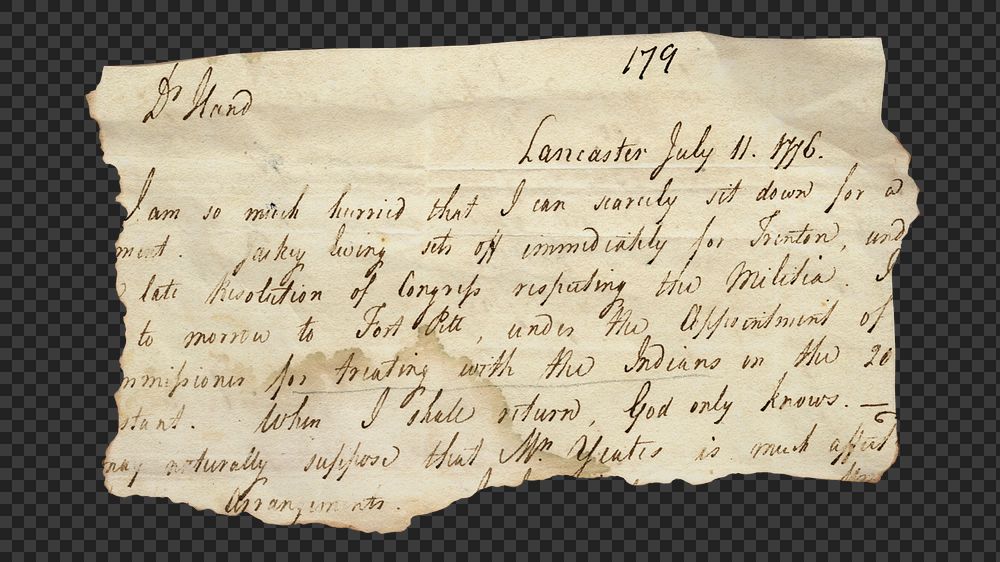 179
Dr Hand
Lancaster July 11. 1776.
I am so much hurried that I can scarcely sit down for a
ment. Jaskey Ewing sets off immediately for Trenton, und
late Resolution of Congress respecting the Militia. I
to morrow to Fort Pitt, under the Appointment of
mmissioner for treating with the Indians on the 20
stant. When I shall return, God only knows. —
may naturally suppose that Mrs. Yeates is much affect
Arrangements.